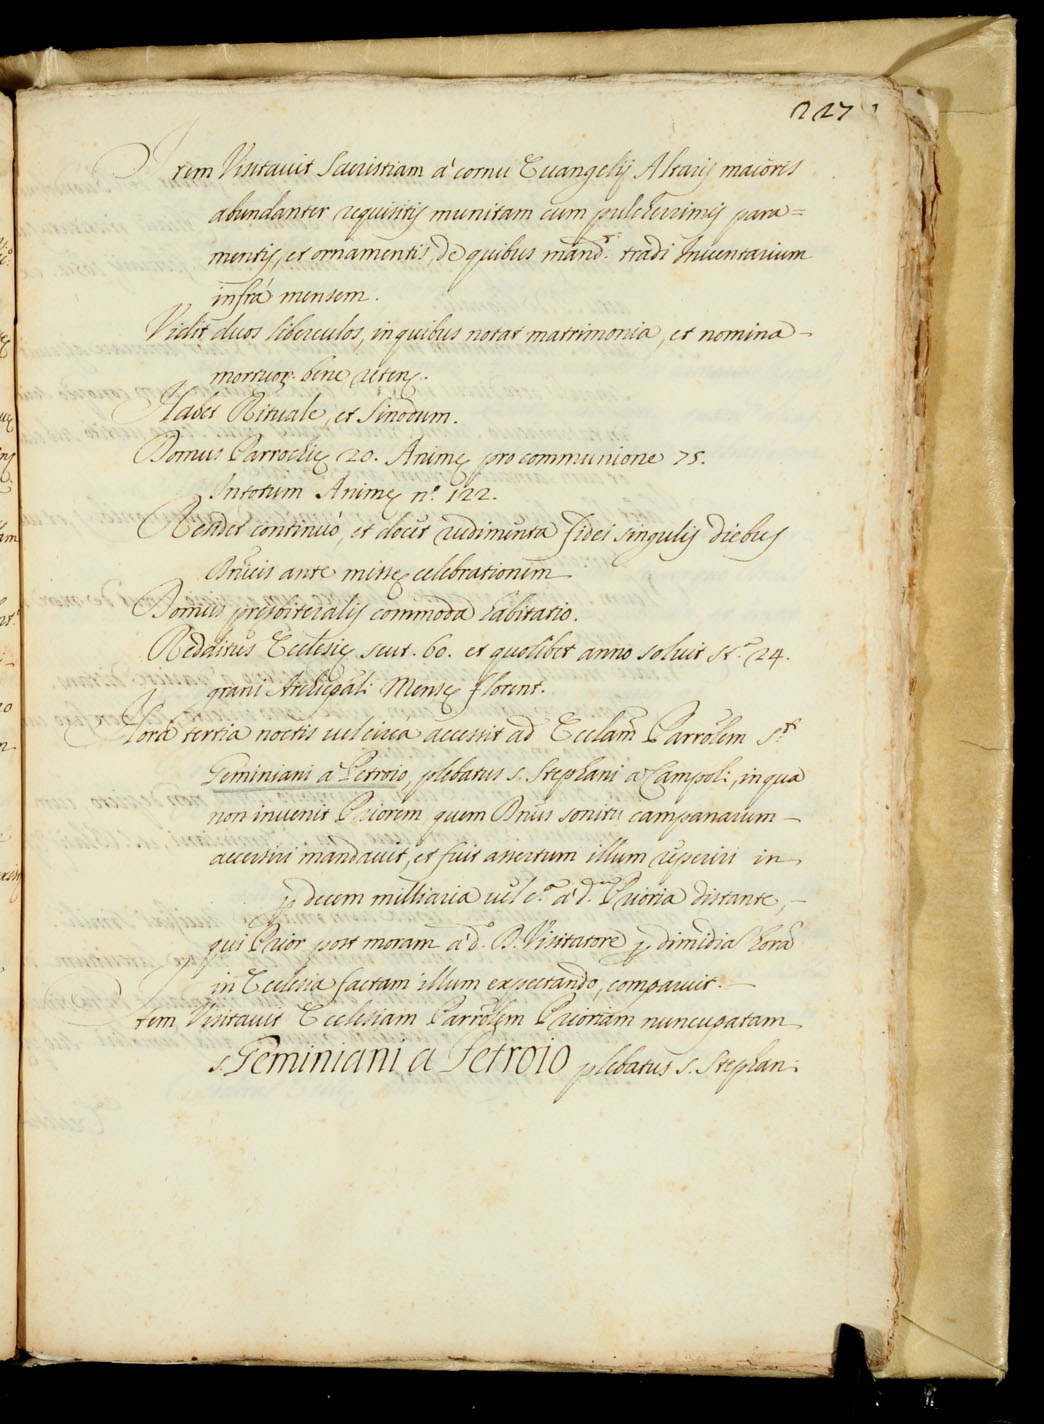 227
Item Visitauit Sacristiam à cornu Euangelij Altaris maioris
abundanter requisitis munitam cum pulcherrimis para=
mentis, et ornamentis, de quibus mand.t tradi Inuentarium
infrà mensem.
Vidit duos liberculos, in quibus notat matrimonia, et nomina
mortuor. bene reten.
Habet Rituale, et Sinodum.
Domus Parrochię 20. Animę pro communione 75.
Intotum Animę n.o 122.
Residet continuò, et docet rudimenta fidei singulis diebus
Dnicis ante missę celebrationem
Domus presbiteralis commoda habitatio.
Redditus Ecclesię scut. 60. et quolibet anno soluit st.a 24.
grani Archiepali Mensę florent.
Hora tertia noctis uel circa accessit ad Ecclam Parrolem S.ti
Geminiani a Petroio, plebatus s. Stephani a Campoli, in qua
non inuenit Priorem quem Dnus sonitu campanarum
accersiri mandauit, et fuit assertum illum reperiri in
p decem milliaria uel c.a à d. Prioria distante,
qui Prior post moram à d.o D. Visitatore p dimidia hora
in Ecclesia factam illum expectando, comparuit.
Item Visitauit Ecclesiam Parrolem Prioriam nuncupatam
s. Geminiani a Petroio plebatus s. Stephan: